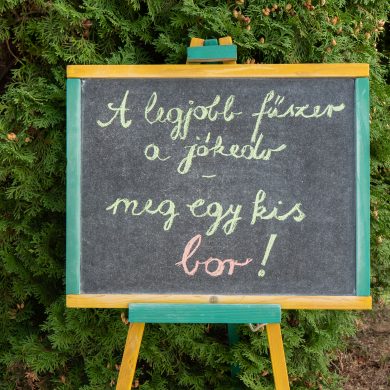 A legjobb fűszer
a jókedv
-
meg egy kis
bor!